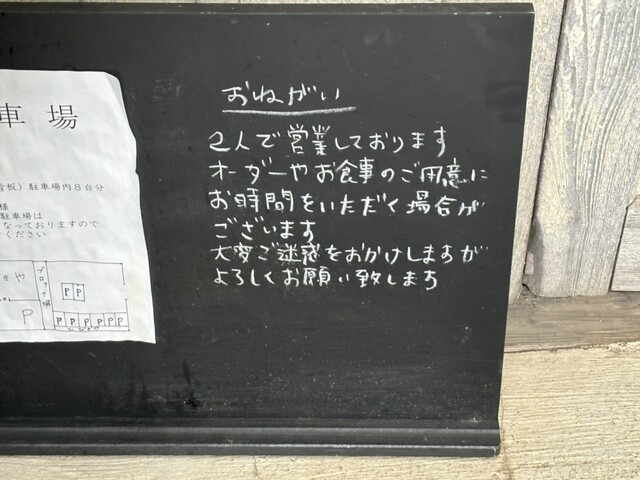 車場
板）駐車場内8台分
様
駐車場は
なっておりますので
ください
や
ブロック塀
P P
P
P P P P P P
おねがい
2人で営業しております
オーダーやお食事のご用意に
お時間をいただく場合が
ございます
大変ご迷惑をおかけしますが
よろしくお願い致します